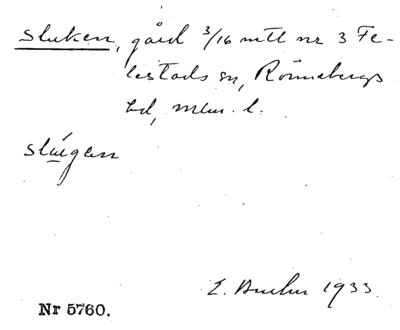 Sluken, gård 3/16 mtl nr 3 Fe-
lestads sn, Rönnebergs
hd, Mlm. l.
slúgan
1933
Nr 5760.